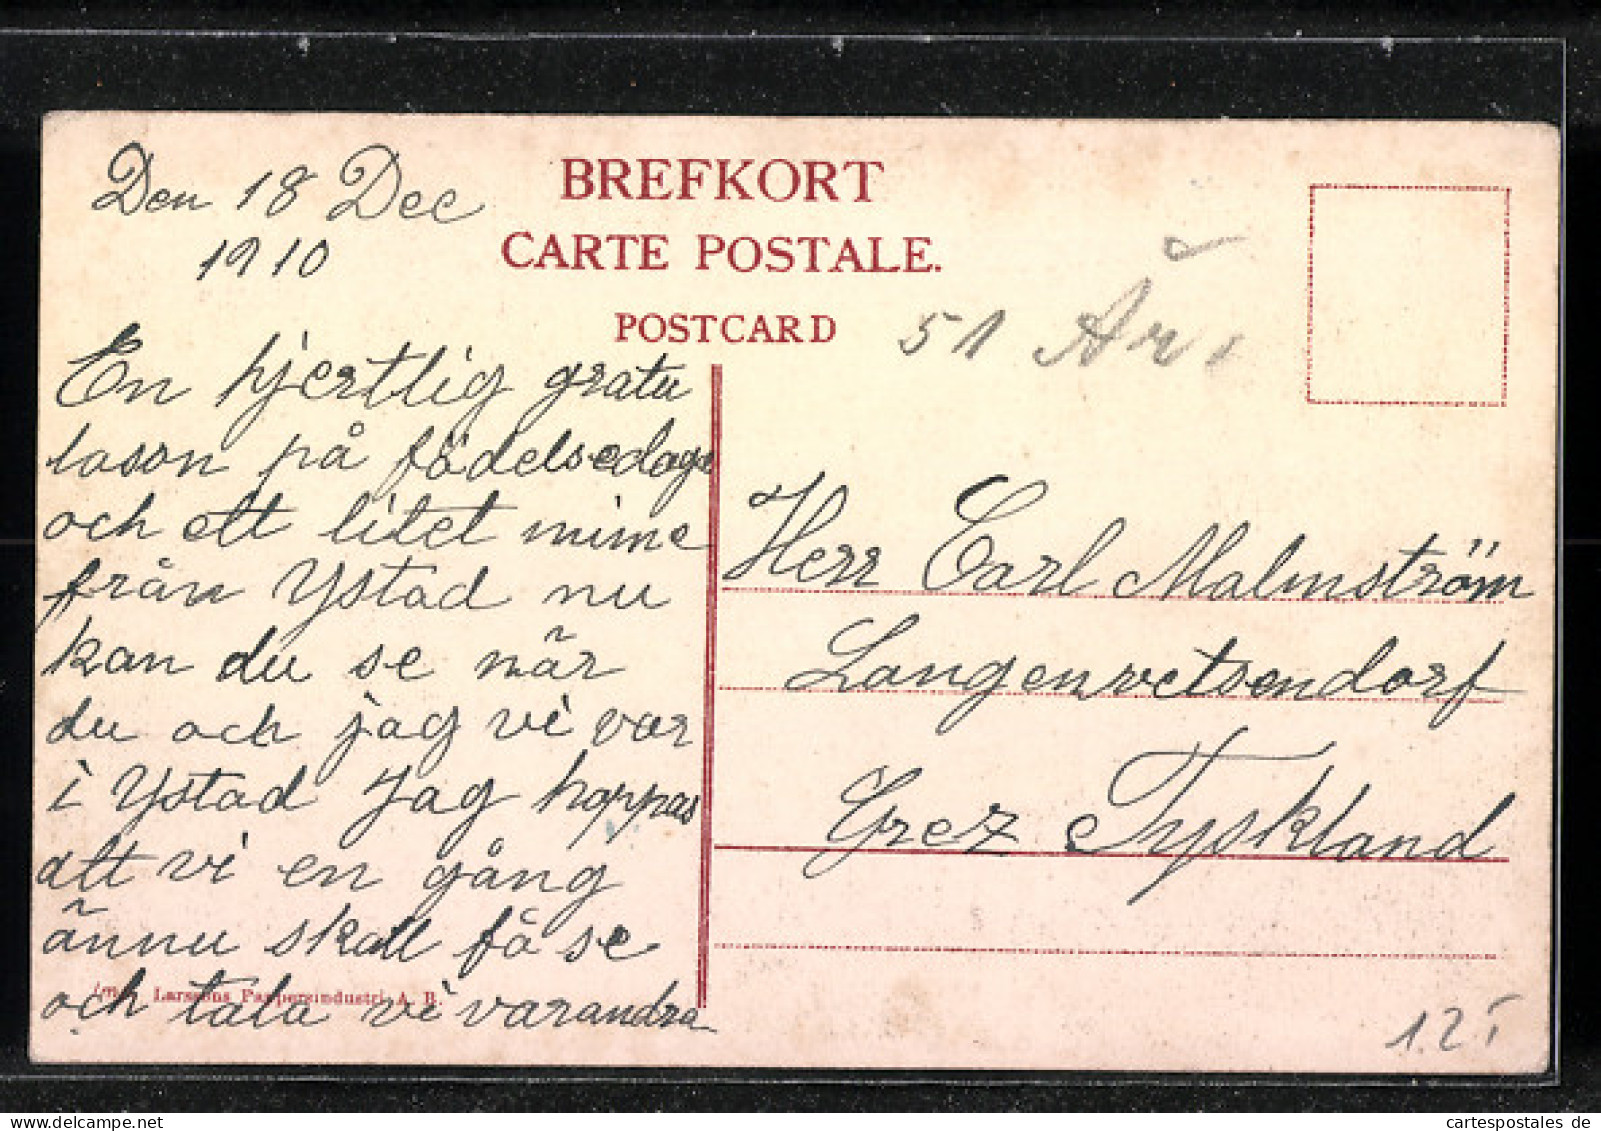 Den 18 Dec
1910
BREFKORT
CARTE POSTALE.
POSTCARD
51 År
En hjertlig gratu
lason på födelsedage
och ett litet mime
från Ystad nu
kan du se när
du och jag vi var
i Ystad Jag hoppas
att vi en gång
ännu skall få se
och tala vi varandra
Larssons Pappersindustri A. B.
Herr Carl Malmström
Langenvetsendorf
Grez Tyskland
cartespostales.de